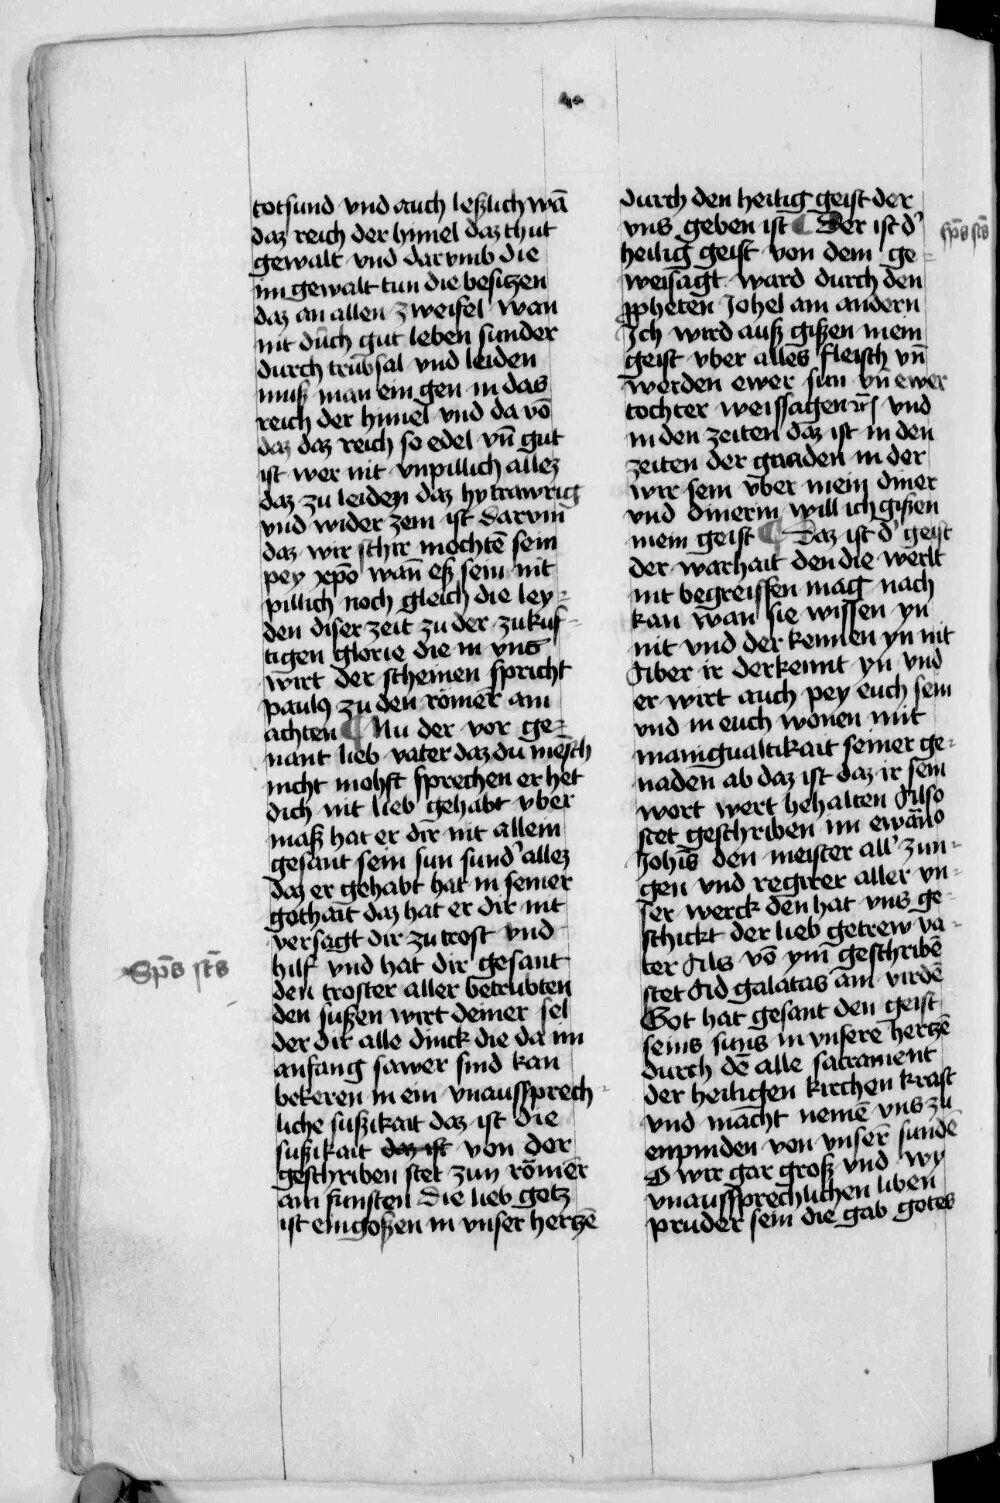 totsund vnd auch leßlich wā
daz reich der himel daz thut
gewalt vnd darvmb die
im gewalt tun die besitzen
daz an allen zweifel wan
nit důch gut leben sunder
durch trůbsal vnd leiden
muß man ein gen in das
reich der himel vnd da vō
daz daz reich so edel vn̄ gut
ist wer nit vnpillich allez
daz zu leiden daz hy trawrig
vnd wider zem ist darvm
daz wir schir mochtē sein
pey xp̄o wan̄ eß sein nit
pillich noch gleich die ley-
den diser zeit zu der zukuf-
tigen glorie die in vns
wirt der scheinen spricht
paulꝰ zu den römer am
achten ¶ Nu der vor ge-
nant lieb vater daz du mēsch
nicht mohst sprechen er het
dich nit lieb gehabt vber
maß hat er dir nit allein
gesant sein sun sundʾ allez
daz er gehabt hat in seiner
gothait daz hat er dir nit
versagt dir zu trost vnd
Sp̄s sc̄s
hilf vnd hat dir gesant
den troster aller betrubten
den sußen wirt deiner sel
der dir alle dinck die da im
anfang sawer sind kan
bekeren in ein vnaussprech-
liche sußikait daz ist die
sußikait daz ist von der
geschriben stet zun römer
am funften Die lieb gotz
ist eingoßen in vnser hertzē
durch den heilig geist der
vns geben ist ¶ Der ist dʾ
sp̄s sc̄s
heilig geist von dem ge-
weisagt ward durch den
ꝓpheten Johel am andern
Ich wird auß gißen mein
geist vber alles fleisch vn̄
werden ewer sun vn̄ ewer
tochter weissagen ⁊c̄ vnd
in den zeiten daz ist in den
zeiten der gnaden in der
wir sein vber mein diner
vnd dinerin will ich gißen
mein geist ¶ Daz ist dʾ geist
der warhait den die werlt
nit begreiffen mag nach
kan wan sie wissen yn
nit vnd der kennen yn nit
Aber ir derkennt yn vnd
er wirt auch pey euch sein
vnd in euch wonen mit
manigualtikait seiner ge-
naden ab daz ist daz ir sein
wort wert behalten Also
stet geschriben im ewāīo
Joh̄is den meister allʾ zun-
gen vnd regirer aller vn-
ser werck den hat vns ge-
schickt der lieb getrew va-
ter Als vō ym̄ geschribē
stet Ad galatas am virdē
Got hat gesant den geist
seins suns in vnsere hertzē
durch dē alle sacrament
der heiligen kirchen kraft
vnd macht nemē vns zu
enpinden von vnserʾ sundē
O wir gar groß vnd wy
vnaussprechlichen liben
pruder sein die gab gotes